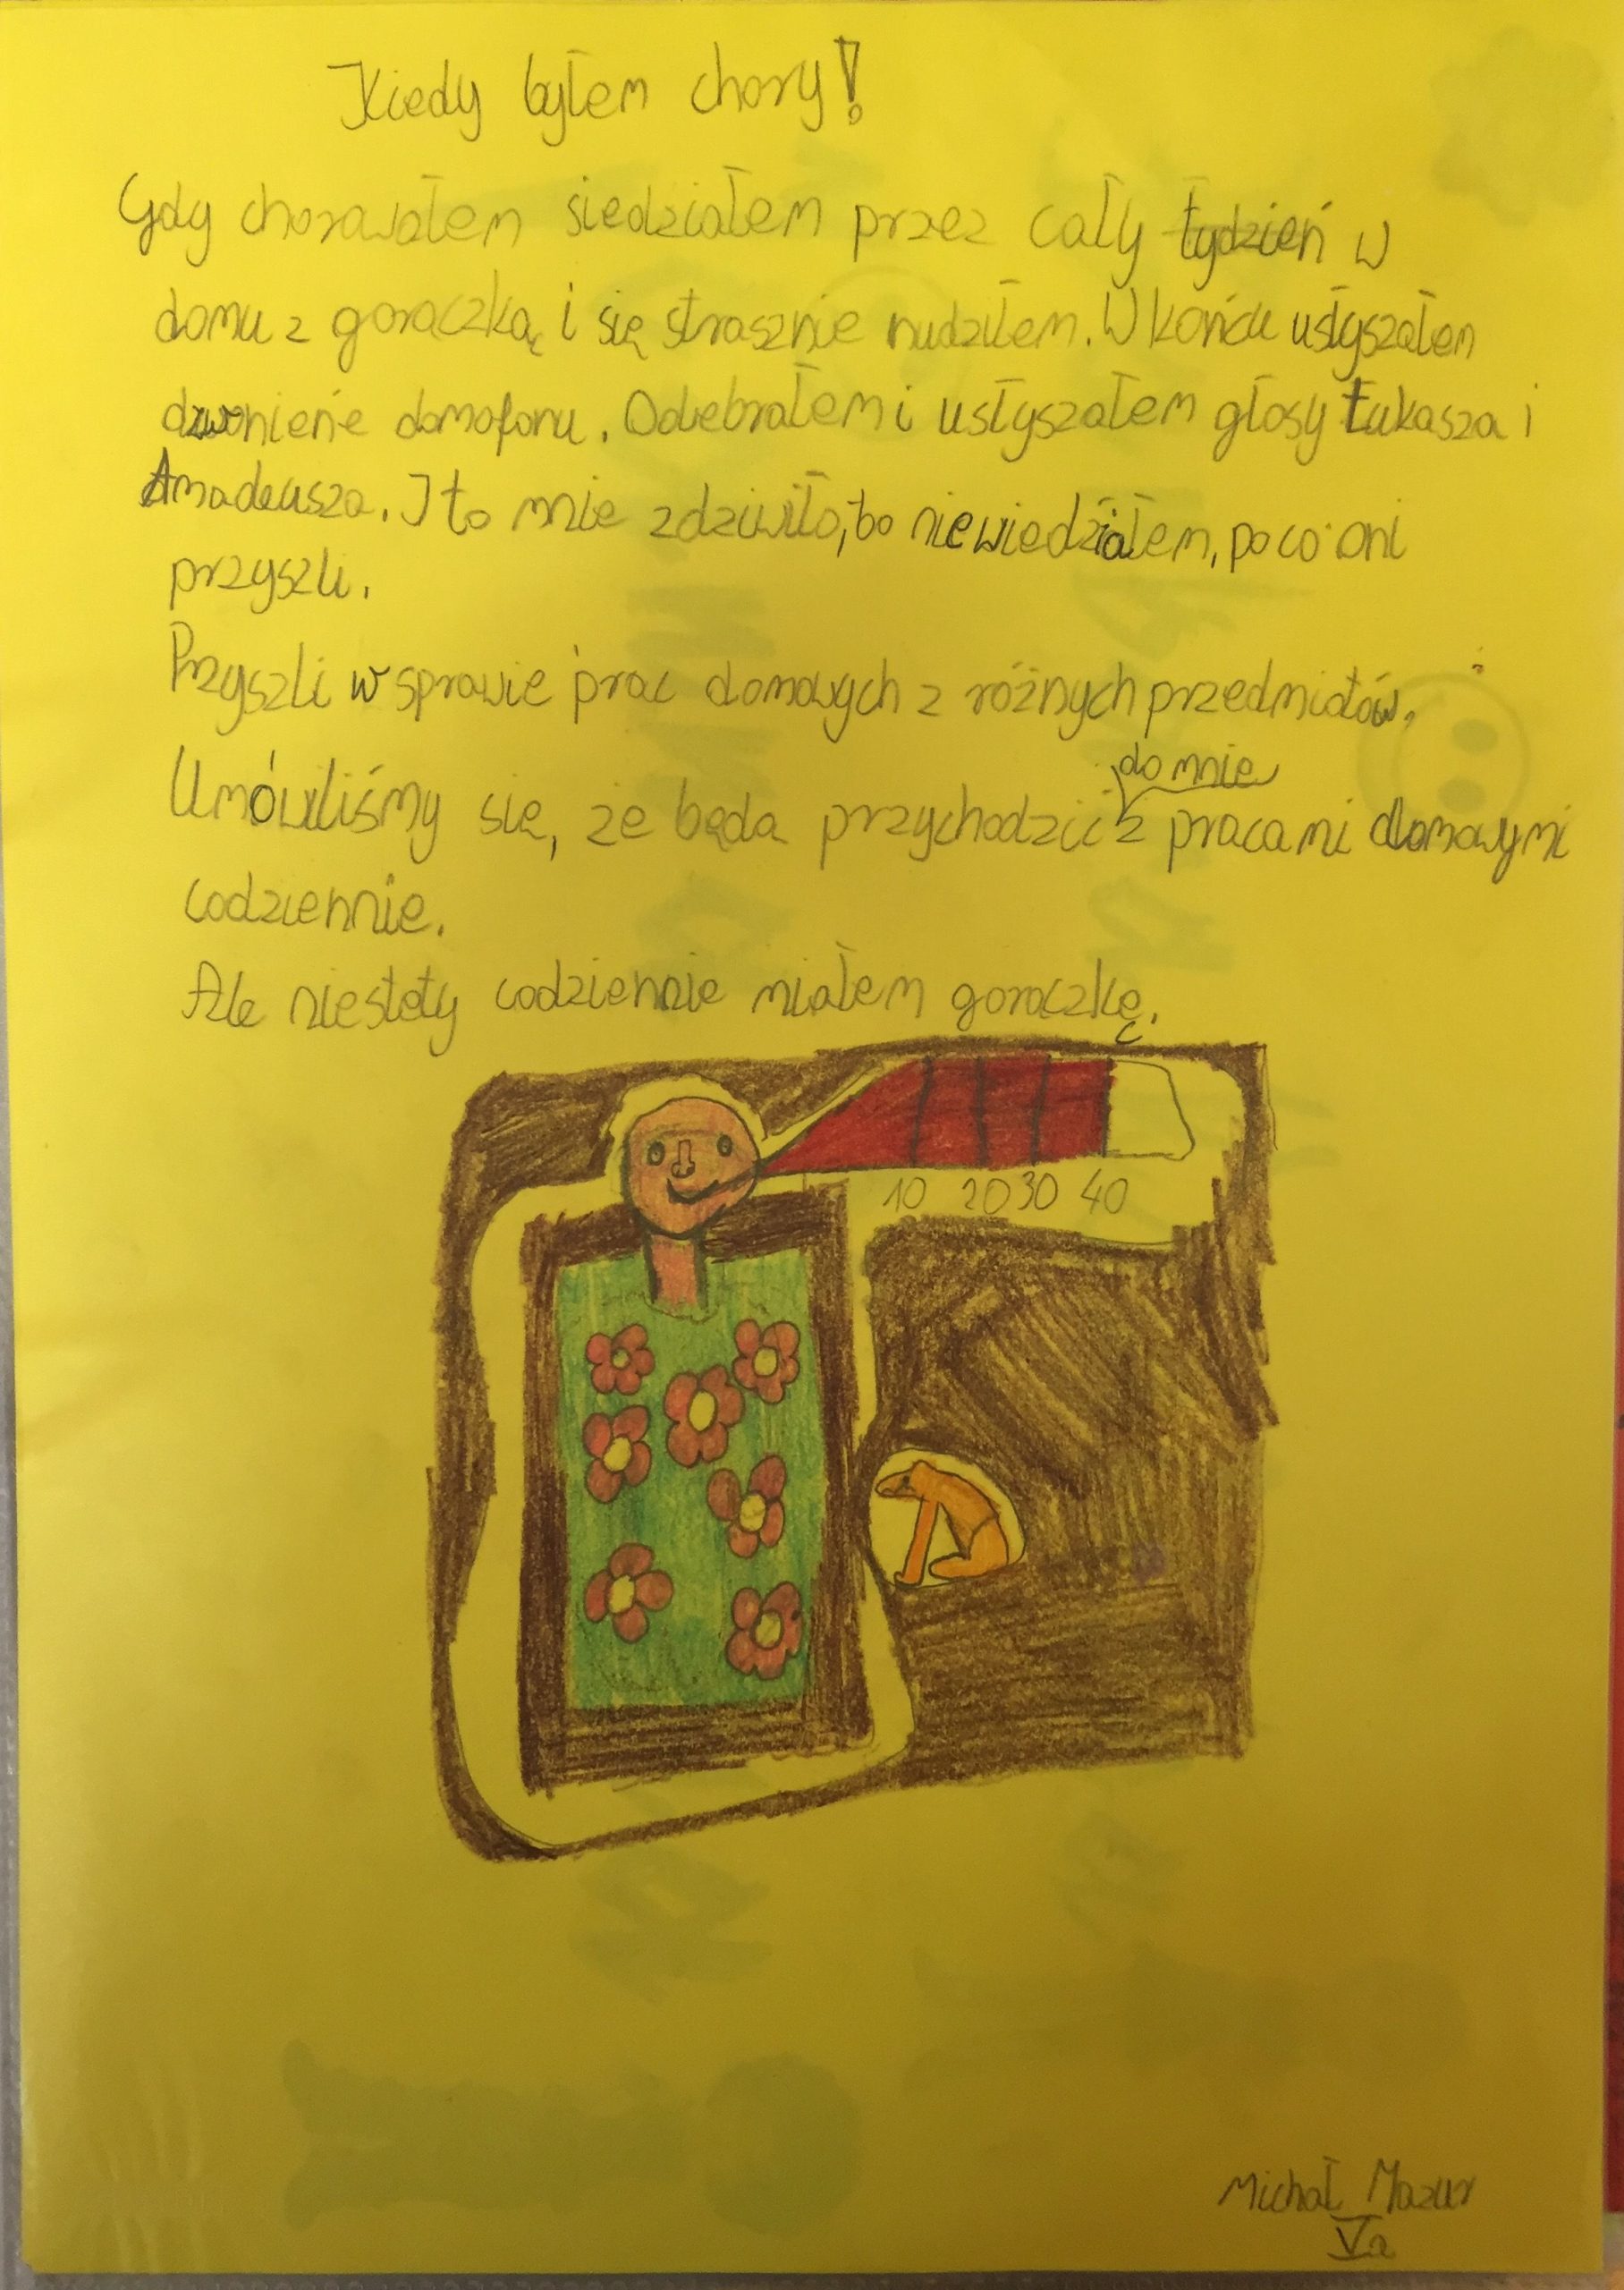 Kiedy byłem chory!
Gdy chorowałem siedziałem przez cały tydzień w
domu z goraczką i się strasznie nudziłem. W końcu usłyszałem
dzwonienie domofonu. Odebrałem i usłyszałem głosy Łukasza i
Amadeusza. I to mnie zdziwiło, bo niewiedziałem, po co oni
przyszli.
Przyszli w sprawie prac domowych z różnych przedmiotów.
do mnie
Umówiliśmy się, że będa przychodzić z pracami domowymi
codziennie.
Ale niestety codziennie miałem goraczkę.
10 20 30 40
Michał Mazur
Va